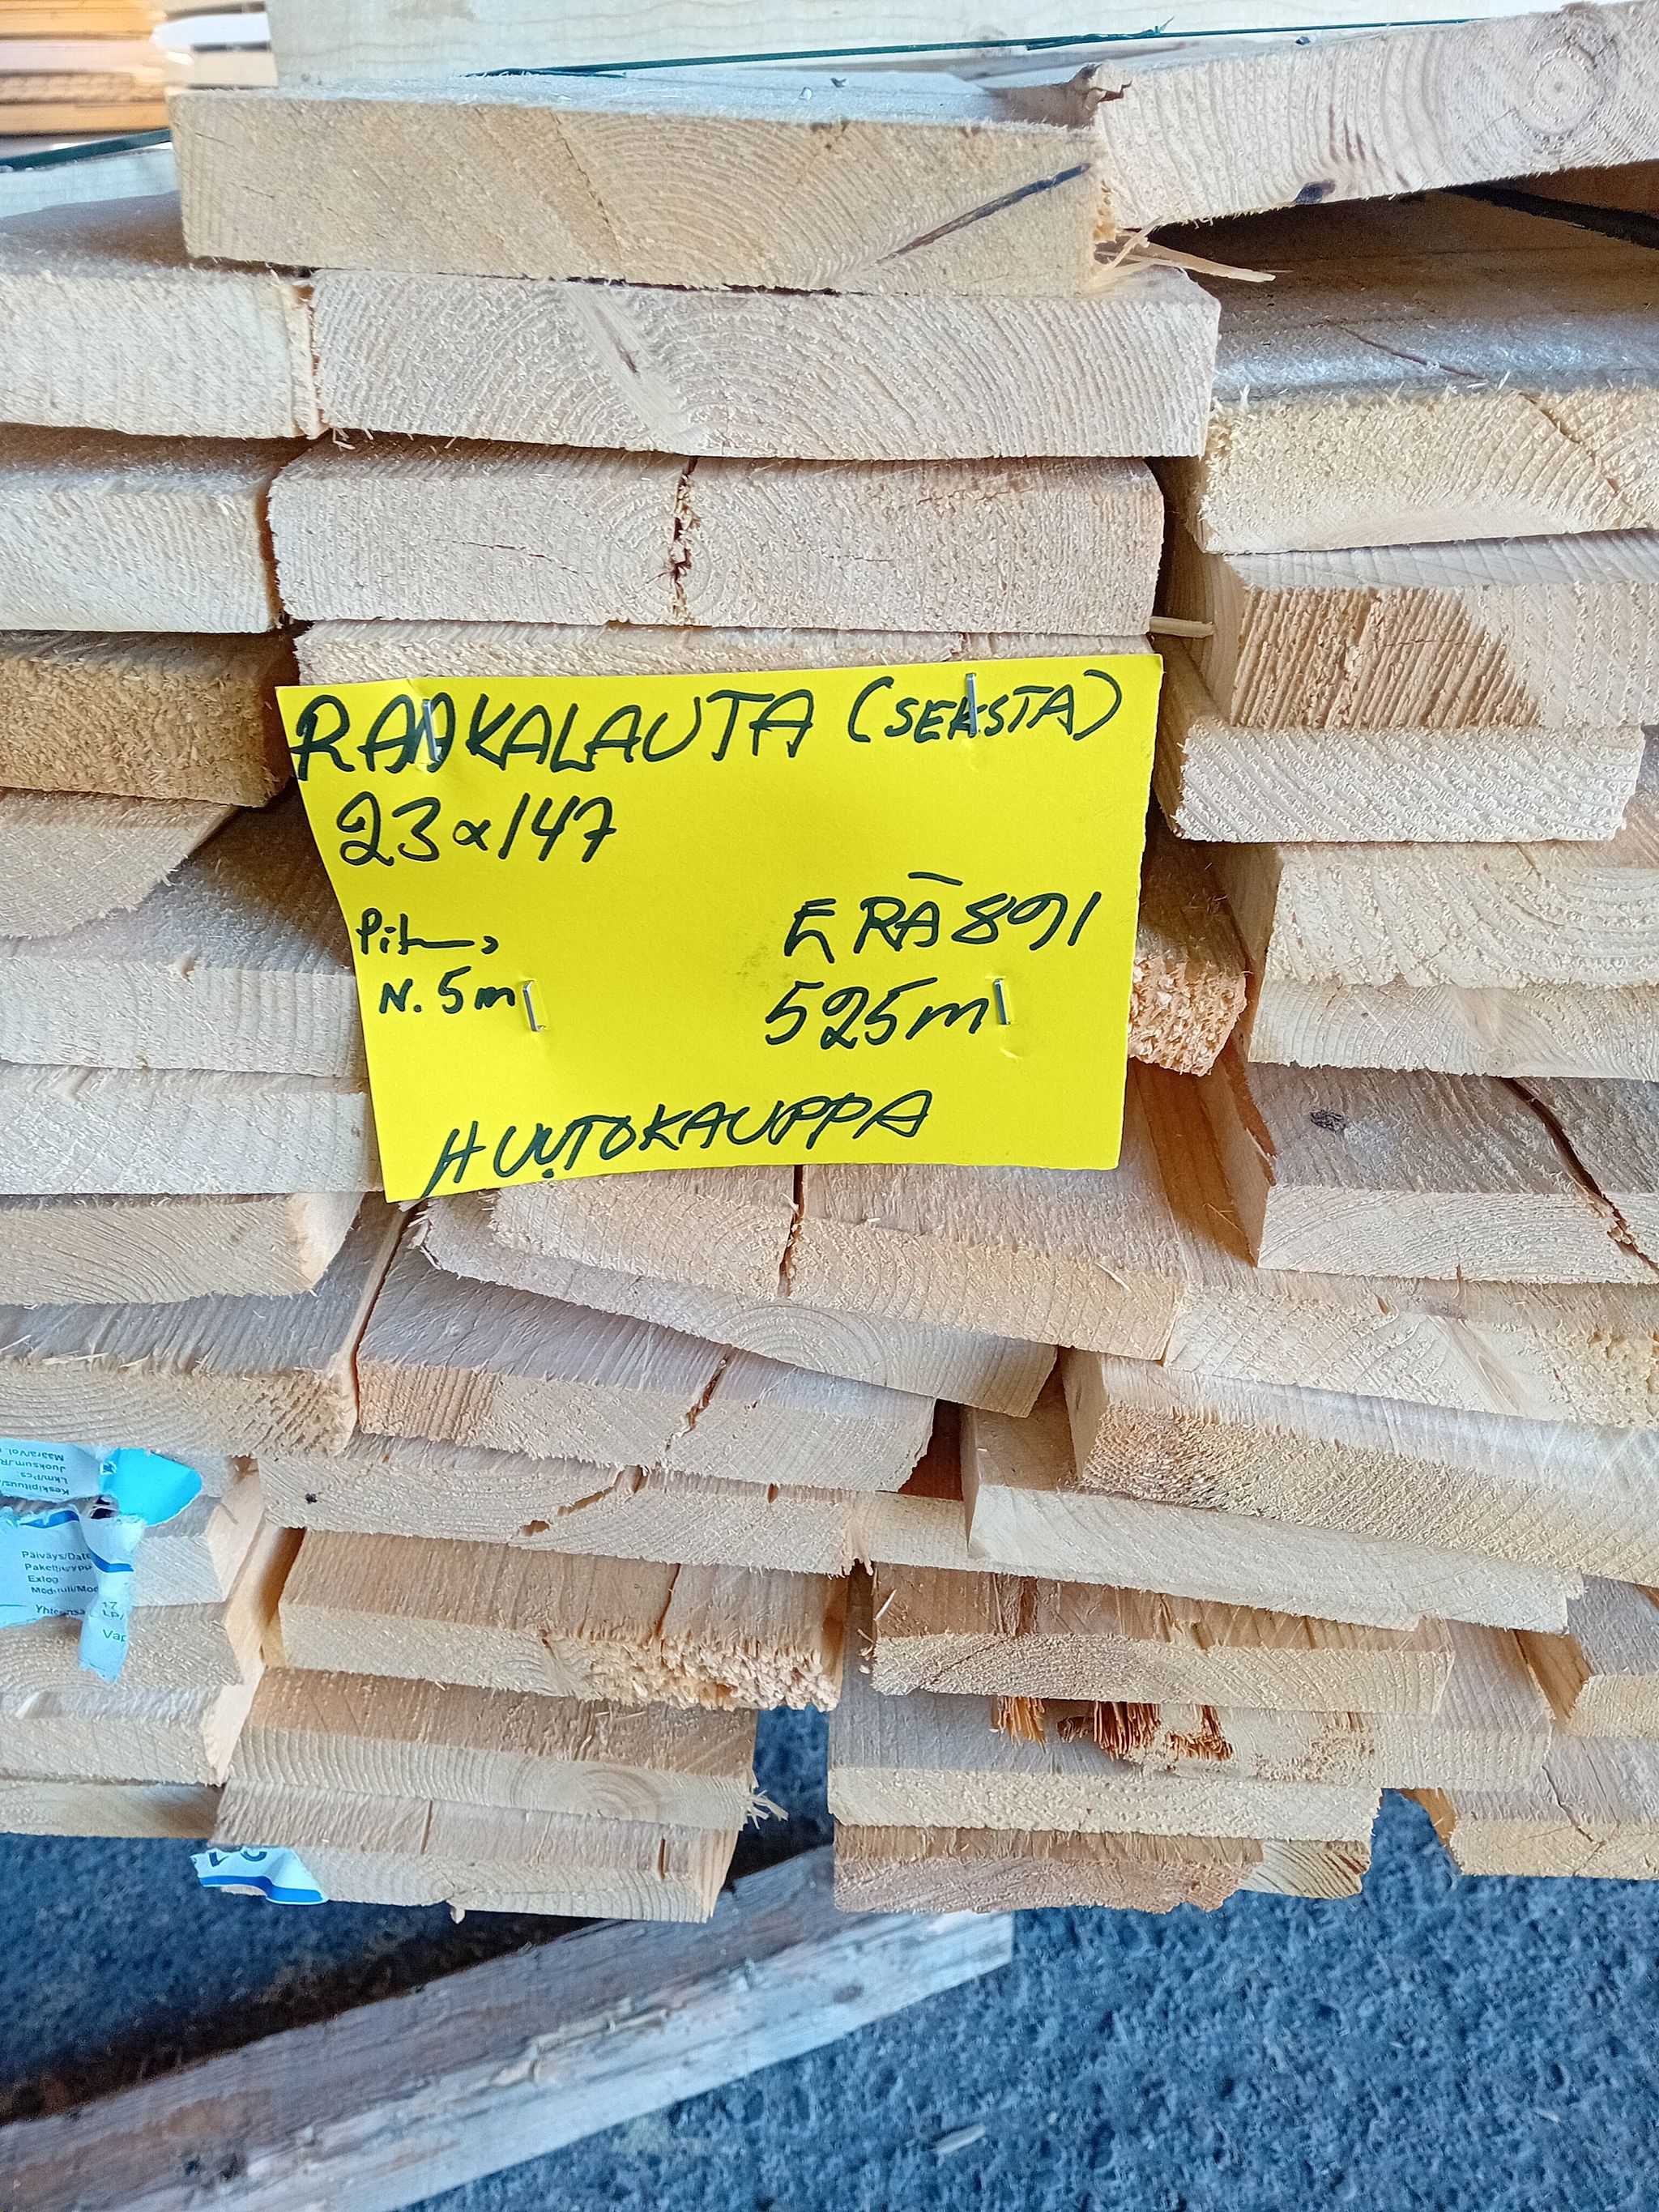 RAAKALAUTA (SEKSTA)
23x147
Pit.
N. 5m
ERÄ 891
525m
HUUTOKAUPPA
Määrä/Vol.
Juoksum./R
Lkm/Pcs:
Keskipituus/
Päiväys/Date
Exlog
Moduuli/Mod
17
Var